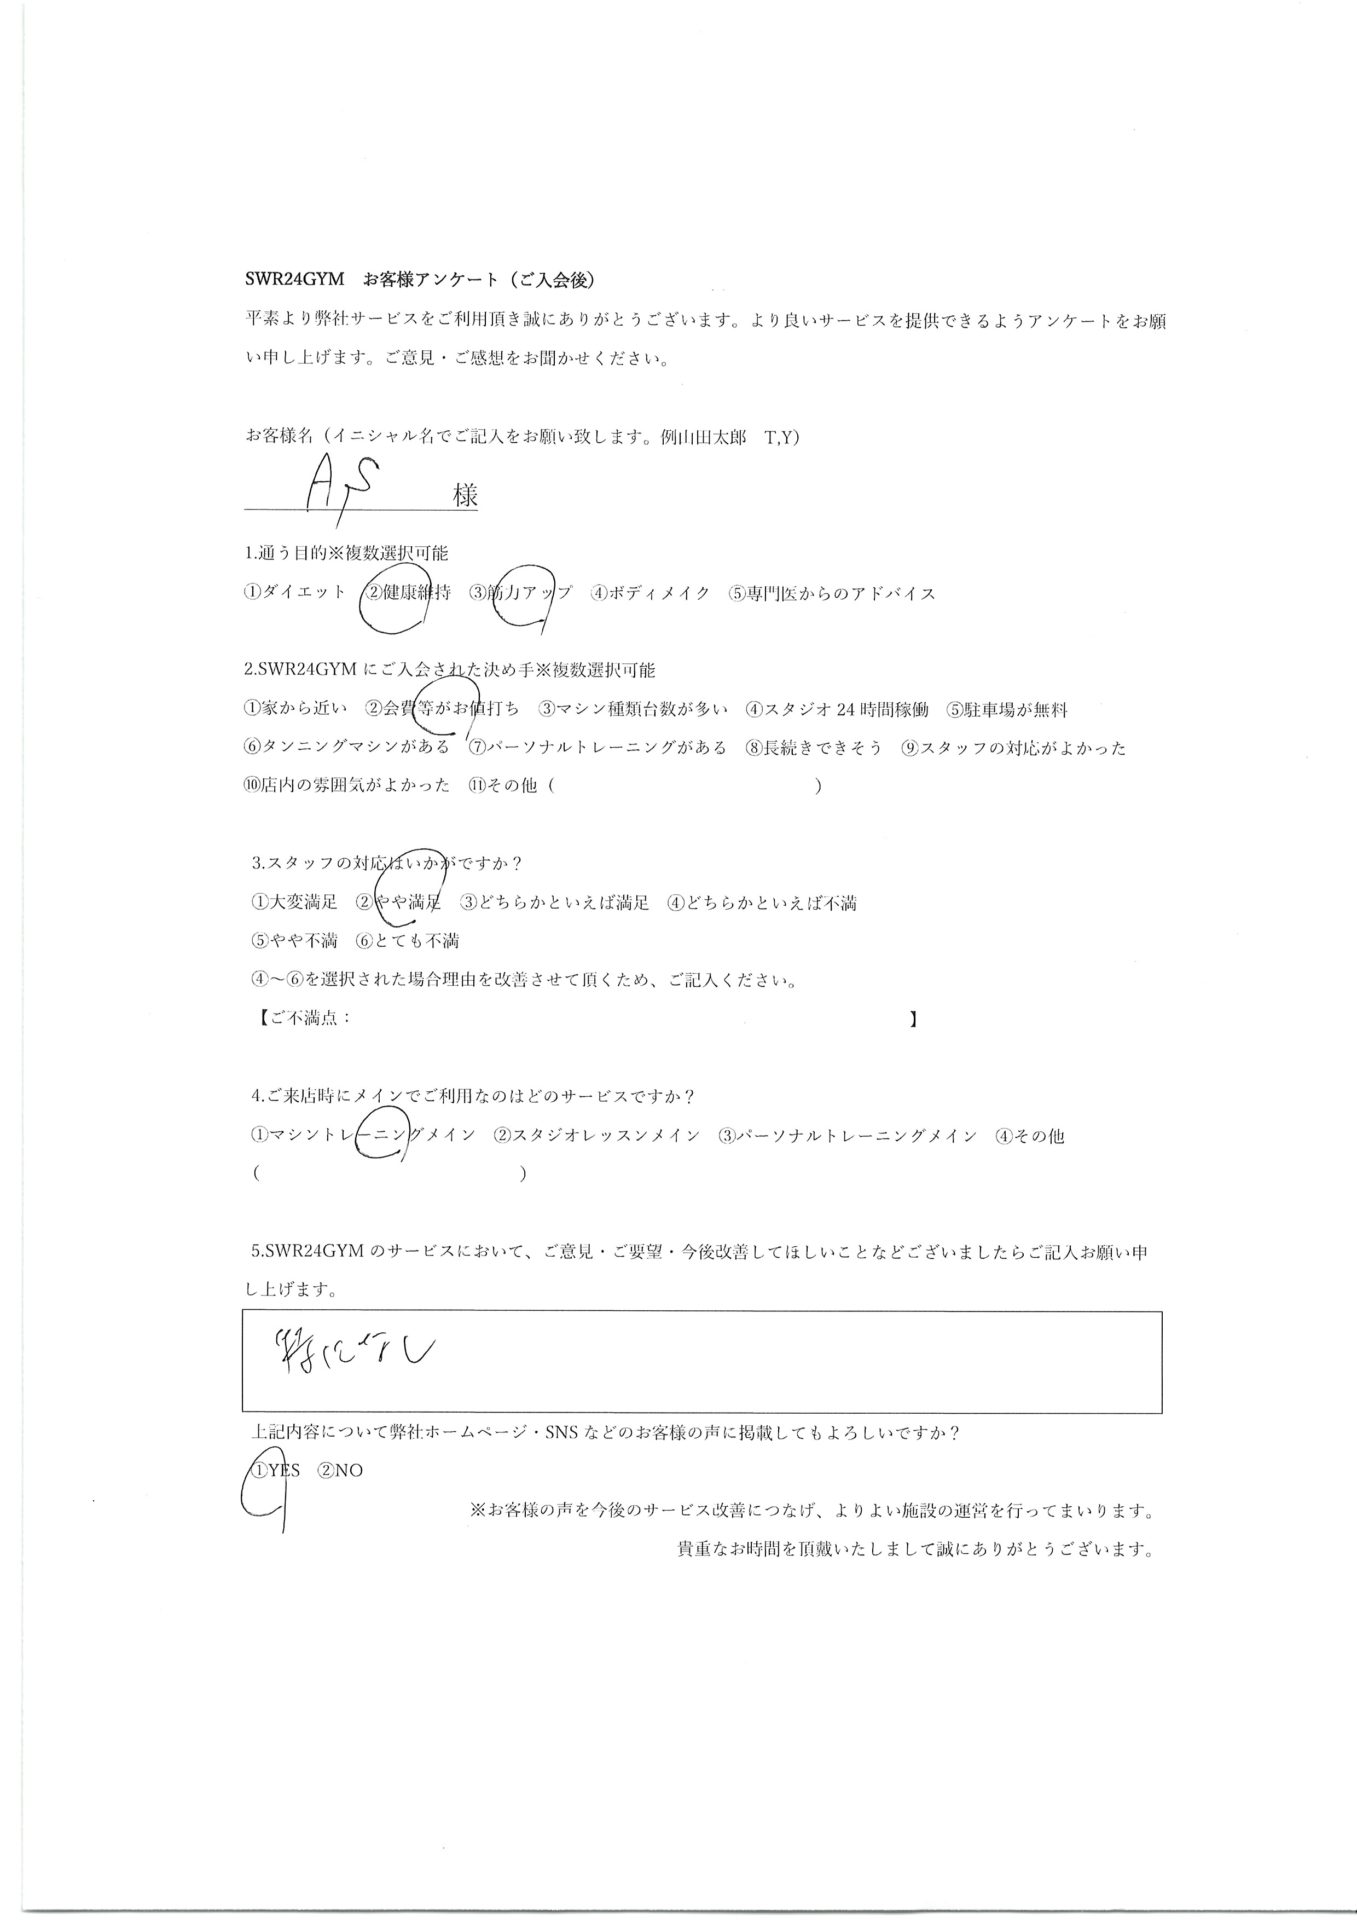 SWR24GYM　お客様アンケート（ご入会後）
平素より弊社サービスをご利用頂き誠にありがとうございます。より良いサービスを提供できるようアンケートをお願
い申し上げます。ご意見・ご感想をお聞かせください。
お客様名（イニシャル名でご記入をお願い致します。例山田太郎　T,Y）
A,S 様
1.通う目的※複数選択可能
①ダイエット　②健康維持　③筋力アップ　④ボディメイク　⑤専門医からのアドバイス
2.SWR24GYM にご入会された決め手※複数選択可能
①家から近い　②会費等がお値打ち　③マシン種類台数が多い　④スタジオ 24 時間稼働　⑤駐車場が無料
⑥タンニングマシンがある　⑦パーソナルトレーニングがある　⑧長続きできそう　⑨スタッフの対応がよかった
⑩店内の雰囲気がよかった　⑪その他（　　　　　　　　　　　　　　　）
3.スタッフの対応はいかがですか？
①大変満足　②やや満足　③どちらかといえば満足　④どちらかといえば不満
⑤やや不満　⑥とても不満
④～⑥を選択された場合理由を改善させて頂くため、ご記入ください。
【ご不満点：　　　　　　　　　　　　　　　　　　　　　　　　　　　　　　　　】
4.ご来店時にメインでご利用なのはどのサービスですか？
①マシントレーニングメイン　②スタジオレッスンメイン　③パーソナルトレーニングメイン　④その他
（　　　　　　　　　　　　　　　）
5.SWR24GYM のサービスにおいて、ご意見・ご要望・今後改善してほしいことなどございましたらご記入お願い申
し上げます。
特になし
上記内容について弊社ホームページ・SNS などのお客様の声に掲載してもよろしいですか？
①YES　②NO
※お客様の声を今後のサービス改善につなげ、よりよい施設の運営を行ってまいります。
貴重なお時間を頂戴いたしまして誠にありがとうございます。